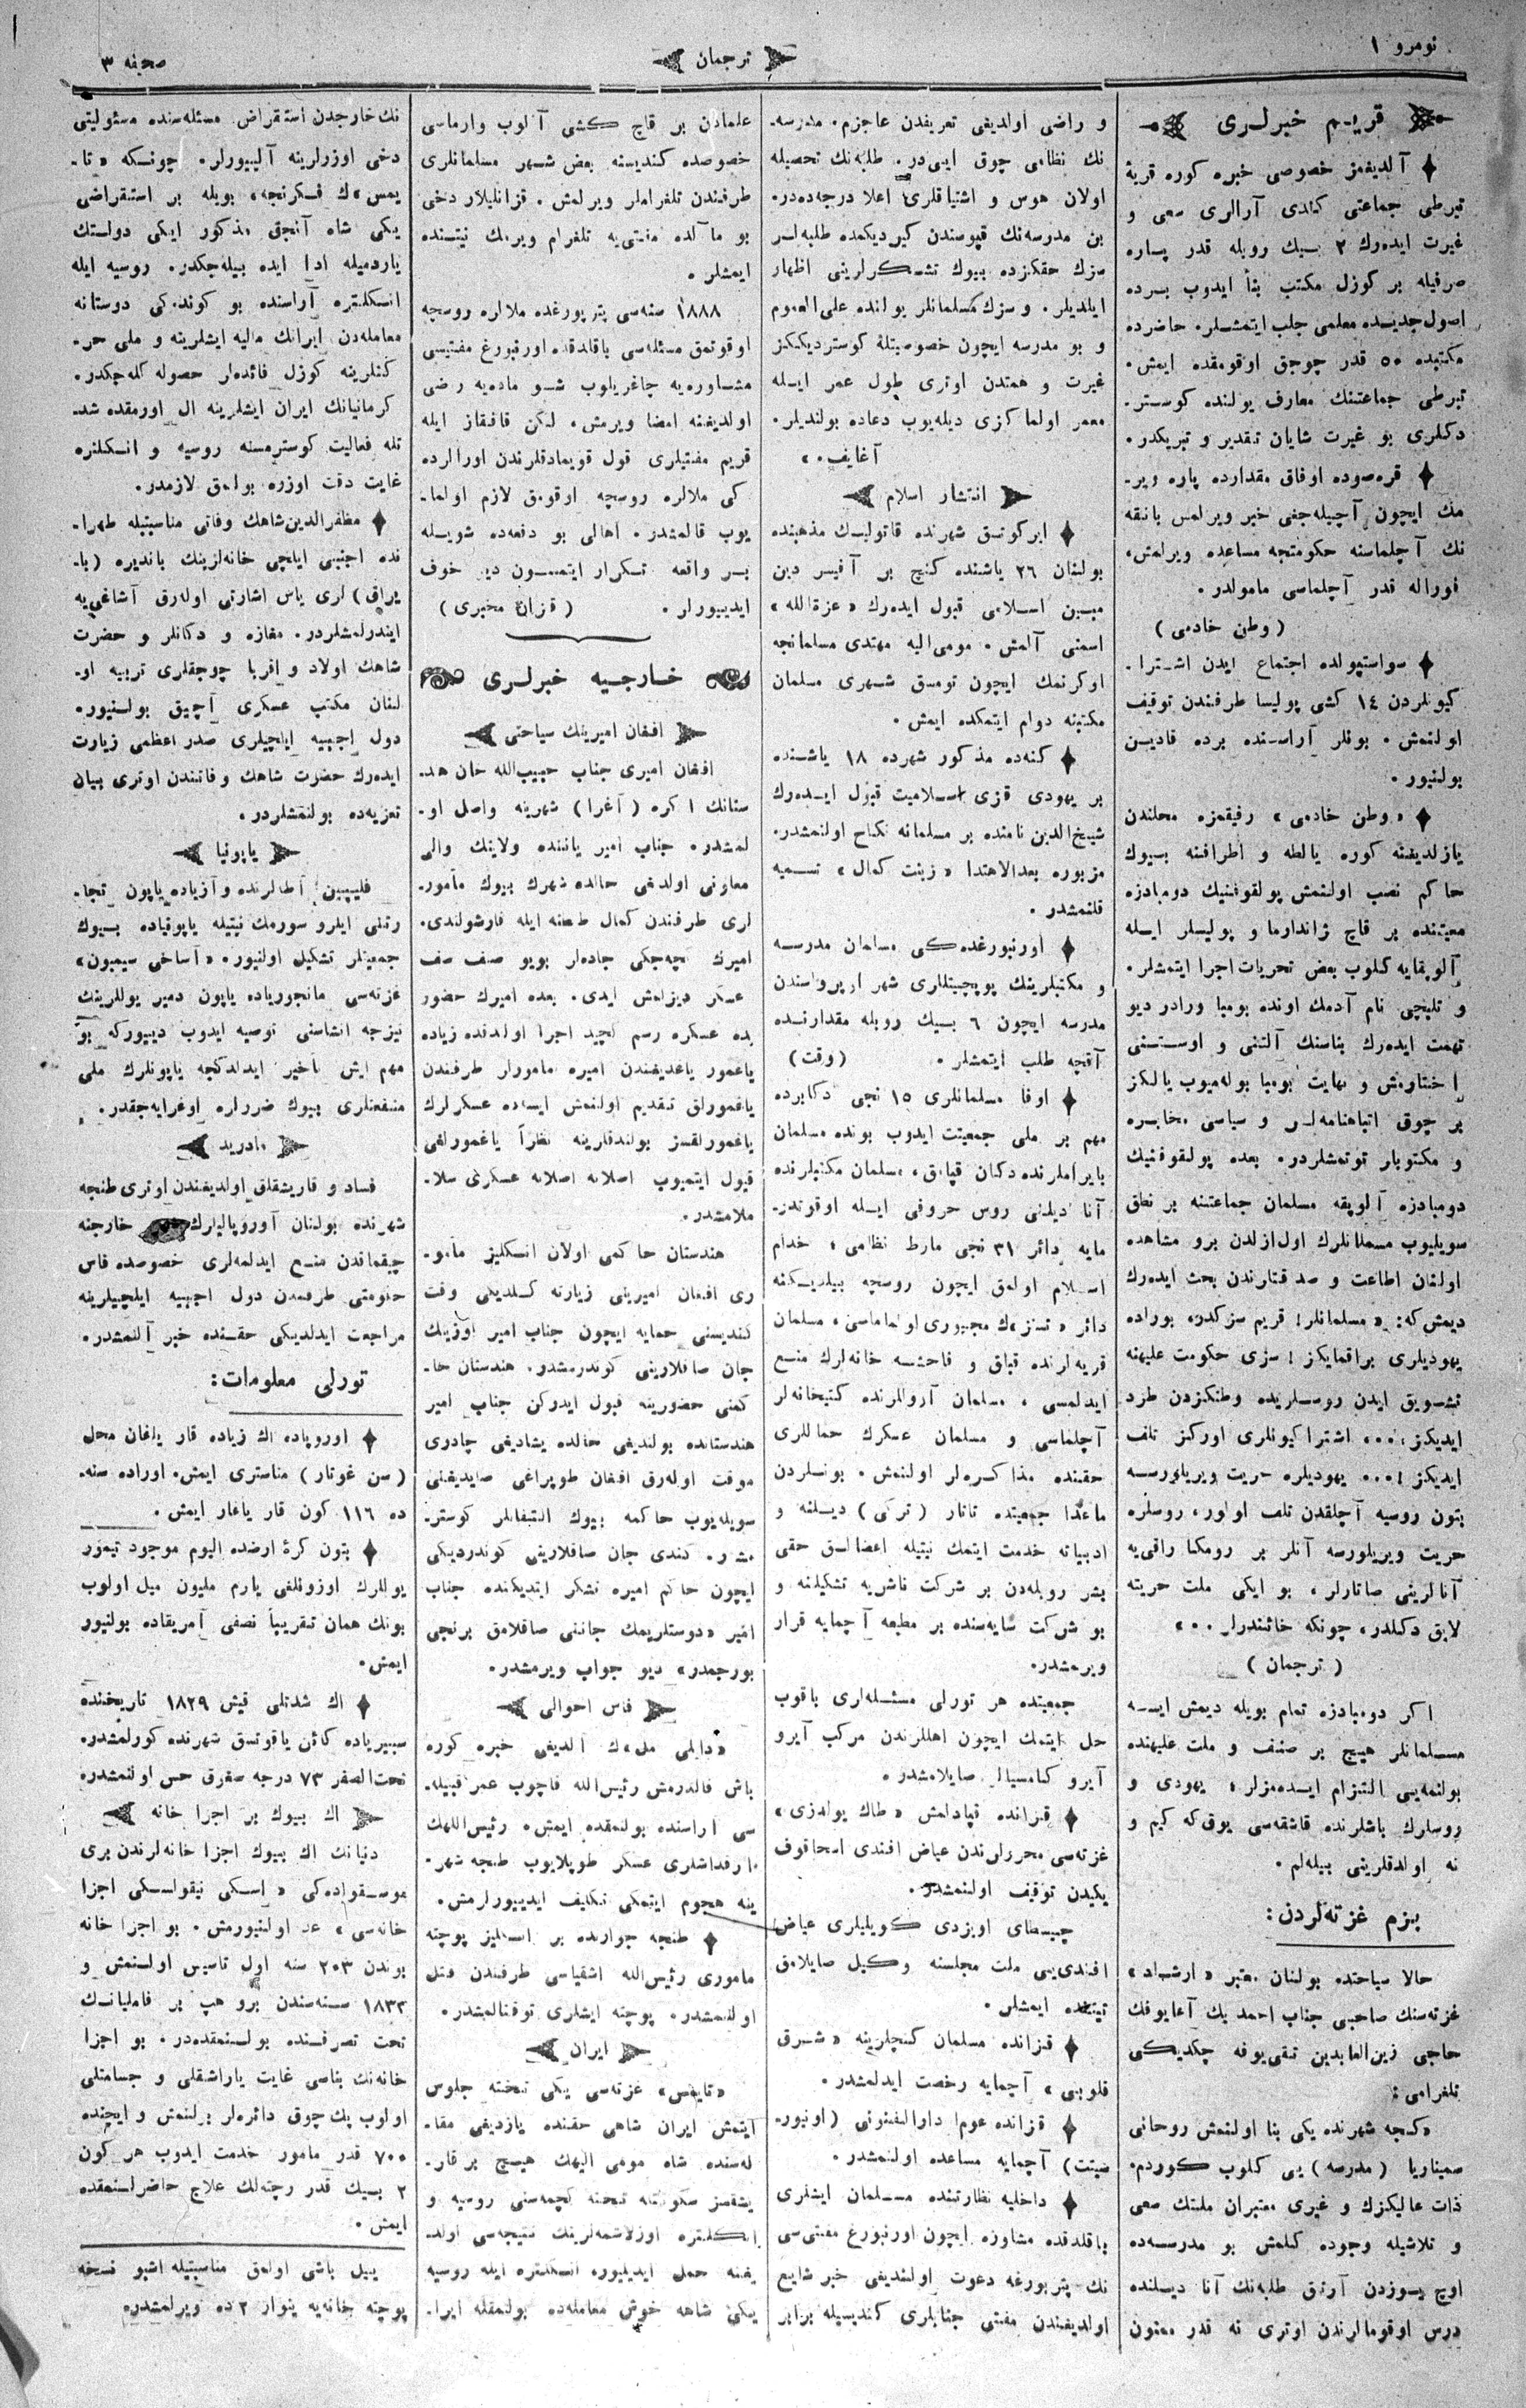 نومرو ١
ترجمان
صحيفه ٣
قريم خبرلرى
آلديغمز خصوصى خبره كوره قريۀ
تبرطى جماعتى كندى آرالرى سعى و
غيرت ايده‌رك ٢ بيك روبله قدر پاره
صرفيله بر كوزل مكتب بنأ ايدوب برده
اصول جديده معلمى جلب ايتمشلر. حاضرده
مكتبده ٥٠ قدر چوجق اوقومقده ايمش.
تبرطى جماعتنك معارف يولنده كوستر-
دكلرى بو غيرت شايان تقدير و تبريكدر.
قره‌صوده اوفاق مقدارده پاره وير-
مك ايچون آچيله‌جغى خبر ويرلمس بانقه
نك آچلماسنه حكومتجه مساعده ويرلمش،
فوراله قدر آچلماسى مامولدر.
(وطن خادمى)
سواستپولده اجتماع ايدن اشترا-
كيونلردن ١٤ كشى پوليسا طرفندن توقيف
اولنمش. بونلر آراسنده برده قاديسن
بولنيور.
«وطن خادمى» رفيقمزه محلندن
يازلديغنه كوره يالطه و اطرافنه بيوك
حاكم نصب اولنمش پولقوفنيك دومبادزه
معيتنده بر قاچ ژاندارما و پوليسلر ايله
آلوپقايه كلوب بعض تحريات اجرا ايتمشلر.
و تليچى نام آدمك اونده بومبا ورادر ديو
تهمت ايده‌رك بناسنك آلتنى و اوستنى
اختارمش و نهايت بومبا بوله‌ميوب يالكز
بر چوق انباهنامه‌لر و سياسى مخابره
و مكتوبلر توتمشلردر. بعده پولقوفنيك
دومبادزه آلوپقه مسلمان جماعتنه بر نطق
سويليوب مسلمانلرك اول‌ازلدن برو مشاهده
اولنان اطاعت و صداقتلرندن بحث ايده‌رك
ديمش‌كه: «مسلمانلر! قريم سزكدر، بوراده
يهوديلرى براقمايكز! سزى حكومت عليهنه
تشويق ايدن روسلريده وطنكزدن طرد
ايديكز،... اشتراكيونلرى اوركز تلف
ايديكز!... يهوديلره حريت ويريلورسه
بتون روسيه آچلقدن تلف اولور، روسلره
حريت ويريلورسه آنلر بر رومكا راقى‌يه
آنالرينى صاتارلر، بو ايكى ملت حريته
لايق دكلدر، چونكه خائندرلر..»
(ترجمان)
اكر دومبادزه تمام بويله ديمش ايسه
مسلمانلر هيچ بر صنف و ملت عليهنده
بولنمه‌يى التزام ايده‌مزلر؛ يهودى و
روسلرك باشلرنده قاشقه‌سى يوق‌كه كيم و
نه اولدقلرينى بيله‌لم.
بزم غزته‌لردن:
حالا سياحتده بولنان معتبر «ارشاد»
غزته‌سنك صاحبى جناب احمد بك آغايوفك
حاجى زين‌العابدين تقى‌يوفه چكديكى
تلغرامى:
«كنجه شهرنده يكى بنا اولنمش روحانى
سميناريا (مدرسه) يى كلوب كوردم.
ذات عاليكزك و غيرى معتبران ملتك سعى
و تلاشيله وجوده كلمش بو مدرسه‌ده
اوچ يوزدن آرتق طلبه‌نك آنا ديلنده
درس اوقومالرندن اوترى نه قدر ممنون
و راضى اولديغى تعريفدن عاجزم. مدرسه-
نك نظامى چوق ايى‌در. طلبه‌نك تحصيله
اولان هوس و اشتياقلرى اعلا درجه‌ده‌در.
بن مدرسه‌نك قپوسندن كيرديكمده طلبه‌لر
سزك حقكزده بيوك تشكرلرينى اظهار
ايلديلر. و سزك مسلمانلر يولنده على‌العموم
و بو مدرسه ايچون خصوصيتله كوسترديككز
غيرت و همتدن اوترى طول عمر ايله
معمر اولماكزى ديله‌يوب دعاده بولنديلر.
آغايف.»
انتشار اسلام
ايركوتسق شهرنده قاتوليك مذهبنده
بولنان ٢٦ ياشنده كنج بر آفيسر دين
مبين اسلامى قبول ايده‌رك «عزةالله»
اسمنى آلمش. مومى‌اليه مهتدى مسلمانجه
اوكرنمك ايچون تومسق شهرى مسلمان
مكتبنه دوام ايتمكده ايمش.
كنه‌ده مذكور شهرده ١٨ ياشنده
بر يهودى قزى اسلاميت قبول ايده‌رك
شيخ‌الدين نامنده بر مسلمانه نكاح اولنمشدر.
مزبوره بعدالاهتدا «زينت كمال» تسميه
قلنمشدر.
اورنبورغده‌كى مسلمان مدرسه
و مكتبلرينك پوپچيتللرى شهر اوپرواسندن
مدرسه ايچون ٦ بيك روبله مقدارنده
آقچه طلب ايتمشلر. (وقت)
اوفا مسلمانلرى ١٥ نجى دكابرده
مهم بر ملى جمعيت ايدوب بونده مسلمان
بايراملرنده دكان قپامق، مسلمان مكتبلرنده
آنا ديلنى روس حروفى ايله اوقوتدر-
مايه دائر ٣١ نجى مارط نظامى؛ خدام
اسلام اولمق ايچون روسچه بيلديكنه
دائر «تسنز»ك مجبورى اولماماسى، مسلمان
قريه‌لرنده قباق و فاحشه خانه‌لرك منع
ايدلمسى، مسلمان آروالرنده كتبخانه‌لر
آچلماسى و مسلمان عسكرك حقاللرى
حقنده مذاكره‌لر اولنمش. بونلردن
ماعدا جمعيتده تاتار (تركى) ديلنه و
ادبياته خدمت ايتمك نيتيله اعضالق حقى
بشر روبله‌دن بر شركت ناشريه تشكيلنه و
بو شركت سايه‌سنده بر مطبعه آچمايه قرار
ويرمشدر.
جمعيتده هر تورلى مسئله‌لرى باقوب
حل ايتمك ايچون اهللرندن مركب آيرو
آيرو كاميسيالر صايلامشدر.
قزانده قپادلمش «طاك يولدزى»
غزته‌سى محررلرندن عياض افندى اسحاقوف
يكيدن توقيف اولنمشدر.
چيسطاى اويزدى كويليلرى عياض
افندى‌يى ملت مجلسنه وكيل صايلامق
نيتنده ايمشلر.
قزانده مسلمان كنجلرينه «شرق
قلوبى» آچمايه رخصت ايدلمشدر.
قزانده عوام دارالفنونى (اونيور-
سيتت) آچمايه مساعده اولنمشدر.
داخليه نظارتنده مسلمان ايشلرى
باقلدقده مشاوره ايچون اورنبورغ مفتى‌سى
نك پتربورغه دعوت اولنديغى خبر شايع
اولديغندن مفتى جنابلرى كنديسيله برابر
علمادن بر قاچ كشى آلوب وارماسى
خصوصده كنديسنه بعض شهر مسلمانلرى
طرفندن تلغراملر ويرلمش. قزانليلار دخى
بو مآلده مفتى‌يه تلغرام ويرمك نيتنده
ايمشلر.
١٨٨٨ سنه‌سى پتربورغده ملالره روسچه
اوقوتمق مسئله‌سى باقلدقده اورنبورغ مفتيسى
مشاوره‌يه چاغريلوب شو ماده‌يه راضى
اولديغنه امضا ويرمش. لكن قافقاز ايله
قريم مفتيلرى قول قويمادقلرندن اورالرده
كى ملالره روسچه اوقومق لازم اولما-
يوب قالمشدر. اهالى بو دفعه‌ده شويله
بر واقعه تكرار ايتمسون ديو خوف
ايدييورلر. (قزان مخبرى)
خارجيه خبرلرى
افغان اميرينك سياحتى
افغان اميرى جناب حبيب‌الله خان هند-
ستانك اكره (آغرا) شهرينه واصل او-
لمشدر. جناب امير ياننده ولاينك والى
معاونى اولدغى حالده شهرك بيوك مأمور-
لرى طرفندن كمال طنطنه ايله قارشولندى.
اميرك كچه‌جكى جاده‌لر بويو صف صف
عسكر ديزلمش ايدى. بعده اميرك حضور
نده عسكره رسم كچيد اجرا اولندقده زياده
ياغمور ياغديغندن اميره مامورلر طرفندن
ياغمورلق تقديم اولنمش ايسه‌ده عسكرلرك
ياغمورلقسز بولندقلرينه نظرأ ياغمورلغى
قبول ايتميوب اصلانه اصلانه عسكرى سلا-
ملامشدر.
هندستان حاكمى اولان انكليز مامو-
رى افغان اميرينى زيارته كلديكى وقت
كنديسنى حمايه ايچون جناب امير اوزينك
جان صاقلارينى كوندرمشدر. هندستان حا-
كمنى حضورينه قبول ايدركن جناب امير
هندستانده بولنديغى حالده يشاديغى چادرى
موقت اوله‌رق افغان طوپراغى صايديغنى
سويله‌يوب حاكمه بيوك التفاتلر كوستر-
مشدر. كندى جان صاقلارينى كوندرديكى
ايچون حاكم اميره تشكر ايتديكنده جناب
امير «دوستلريمك جاننى صاقلامق برنجى
بورجمدر» ديو جواب ويرمشدر.
فاس احوالى
«دايلى ميل»ك آلديغى خبره كوره
باش قالدرمش رئيس‌الله قاچوب عمر قبيله-
سى آراسنده بولنمقده ايمش. رئيس‌اللهك
آرقداشلرى عسكر طوپلايوب طنجه شهر-
ينه هجوم ايتمكى تكليف ايدييورلرمش.
طنجه جوارنده بر انكليز پوچته
مامورى رئيس‌الله اشقياسى طرفندن قتل
اولنمشدر. پوچته ايشلرى توقنالمشدر.
ايران
«تايمس» غزته‌سى يكى تخته جلوس
ايتمش ايران شاهى حقنده يازديغى مقا-
له‌سنده شاه مومى اليهك هيچ بر قار-
يشقسز سكونتله تخته كچمه‌سنى روسيه و
انكلتره اوزلاشمه‌لرينك نتيجه‌سى اولد-
يغنه حمل ايدييور. انكلتره ايله روسيه
يكى شاهه خوش معامله‌ده بولنمقله ايرا-
نك خارجدن استقراض مسئله‌سنده مسئوليتى
دخى اوزرلرينه آلييورلر. چونكه «تا-
يمس»ك فكرنجه، بويله بر استقراضى
يكى شاه آنجق مذكور ايكى دولتك
ياردميله ادا ايده بيله‌جكدر. روسيه ايله
انكلتره آراسنده بو كوندكى دوستانه
معامله‌دن ايرانك ماليه ايشلرينه و ملى حر-
كتلرينه كوزل فائده‌لر حصوله كله‌جكدر.
كرمانيانك ايران ايشلرينه ال اورمقده شد-
تله فعاليت كوسترمسنه روسيه و انكلتره
غايت دقت اوزره بولمق لازمدر.
مظفرالدين‌شاهك وفاتى مناسبتيله طهرا-
نده اجنبى ايلچى خانه‌لرينك بانديره (با-
يراق) لرى ياس اشارتى اوله‌رق آشاغى‌يه
ايندرلمشلردر. مغازه و دكانلر و حضرت
شاهك اولاد و اقربا چوجقلرى تربيه او-
لنان مكتب عسكرى آچيق بولنيور.
دول اجنبيه ايلچيلرى صدر اعظمى زيارت
ايده‌رك حضرت شاهك وفاتندن اوترى بيان
تعزيه‌ده بولنمشلردر.
ياپونيا
فليپين آطه‌لرنده و آزياده ياپون تجا-
رتنى ايلرو سورمك نيتيله ياپونياده بيوك
جمعيتلر تشكيل اولنيور. «آساخى سيمبون»
غزته‌سى مانجورياده ياپون دمير يوللرينك
تيزجه انشاسنى توصيه ايدوب دييوركه بو
مهم ايش تأخير ايدلدكجه ياپونلرك ملى
منفعتلرى بيوك ضررلره اوغرايه‌جقدر.
مادريد
فساد و قاريشقلق اولديغندن اوترى طنجه
شهرنده بولنان آوروپاليلرك خارجنه
چيقماقدن منع ايدلمه‌لرى خصوصده فاس
حكومتى طرفندن دول اجنبيه ايلچيلرينه
مراجعت ايدلديكى حقنده خبر آلنمشدر.
تورلى معلومات:
اوروپاده اك زياده قار ياغان محل
(سن غوتار) مناسترى ايمش. اوراده سنه-
ده ١١٦ كون قار ياغار ايمش.
بتون كرۀ ارضده اليوم موجود تيمور
يوللرك اوزونلغى يارم مليون ميل اولوب
بونك همان تقريبأ نصفى آمريقاده بولنيور
ايمش.
اك شدتلى قيش ١٨٢٩ تاريخنده
سيبيرياده كائن ياقوتسق شهرنده كورلمشدر.
تحت‌الصفر ٧٣ درجه صغوق حس اولنمشدر.
اك بيوك بر اجزا خانه
دنيانك اك بيوك اجزا خانه‌لرندن برى
موسقواده‌كى «اسكى نيقولسكى اجزا
خانه‌سى» عد اولنيورمش. بو اجزا خانه
بوندن ٢٠٣ سنه اول تاسيس اولنمش و
١٨٣٣ سنه‌سندن برو هپ بر فاميليانك
تحت تصرفنده بولنمقده‌در. بو اجزا
خانه‌نك بناسى غايت ياراشقلى و جسامتلى
اولوب پك چوق دائره‌لر بولنمش و ايچنده
٧٠٠ قدر مامور خدمت ايدوب هر كون
٢ بيك قدر رچته‌لك علاج حاضرلنمقده
ايمش.
ييل باشى اولمق مناسبتيله اشبو نسخه
پوچته خانه‌يه ينوار ٢ ده ويرلمشدر.